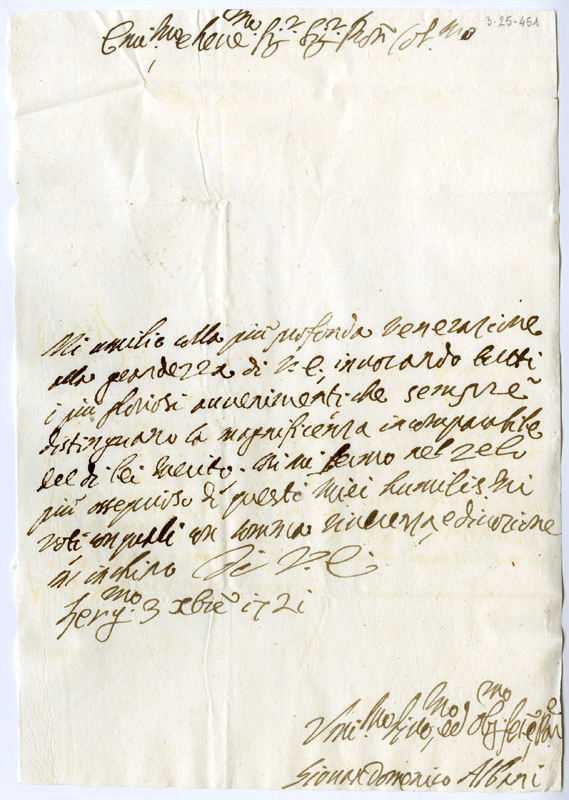 3-25-451
Emi.mo e Reve.mo Sig.r Sig.r Pron Col.mo
Mi umilio colla più profonda venerazione
alla grandezza di V.E. invocando tutti
i più gloriosi avvenimenti che sempre
distinguano la magnificenza incomparabile
del di lei merito. Mi fermo nel zelo
più ossequioso di questi miei humilis.mi
voti, con quali con somma riverenza, e divozione
m'inchino Di V.E.
Berg.mo 3 xbre 1721
Umi.mo Di.mo, ed Obl.mo
Giovan Domenico Albani